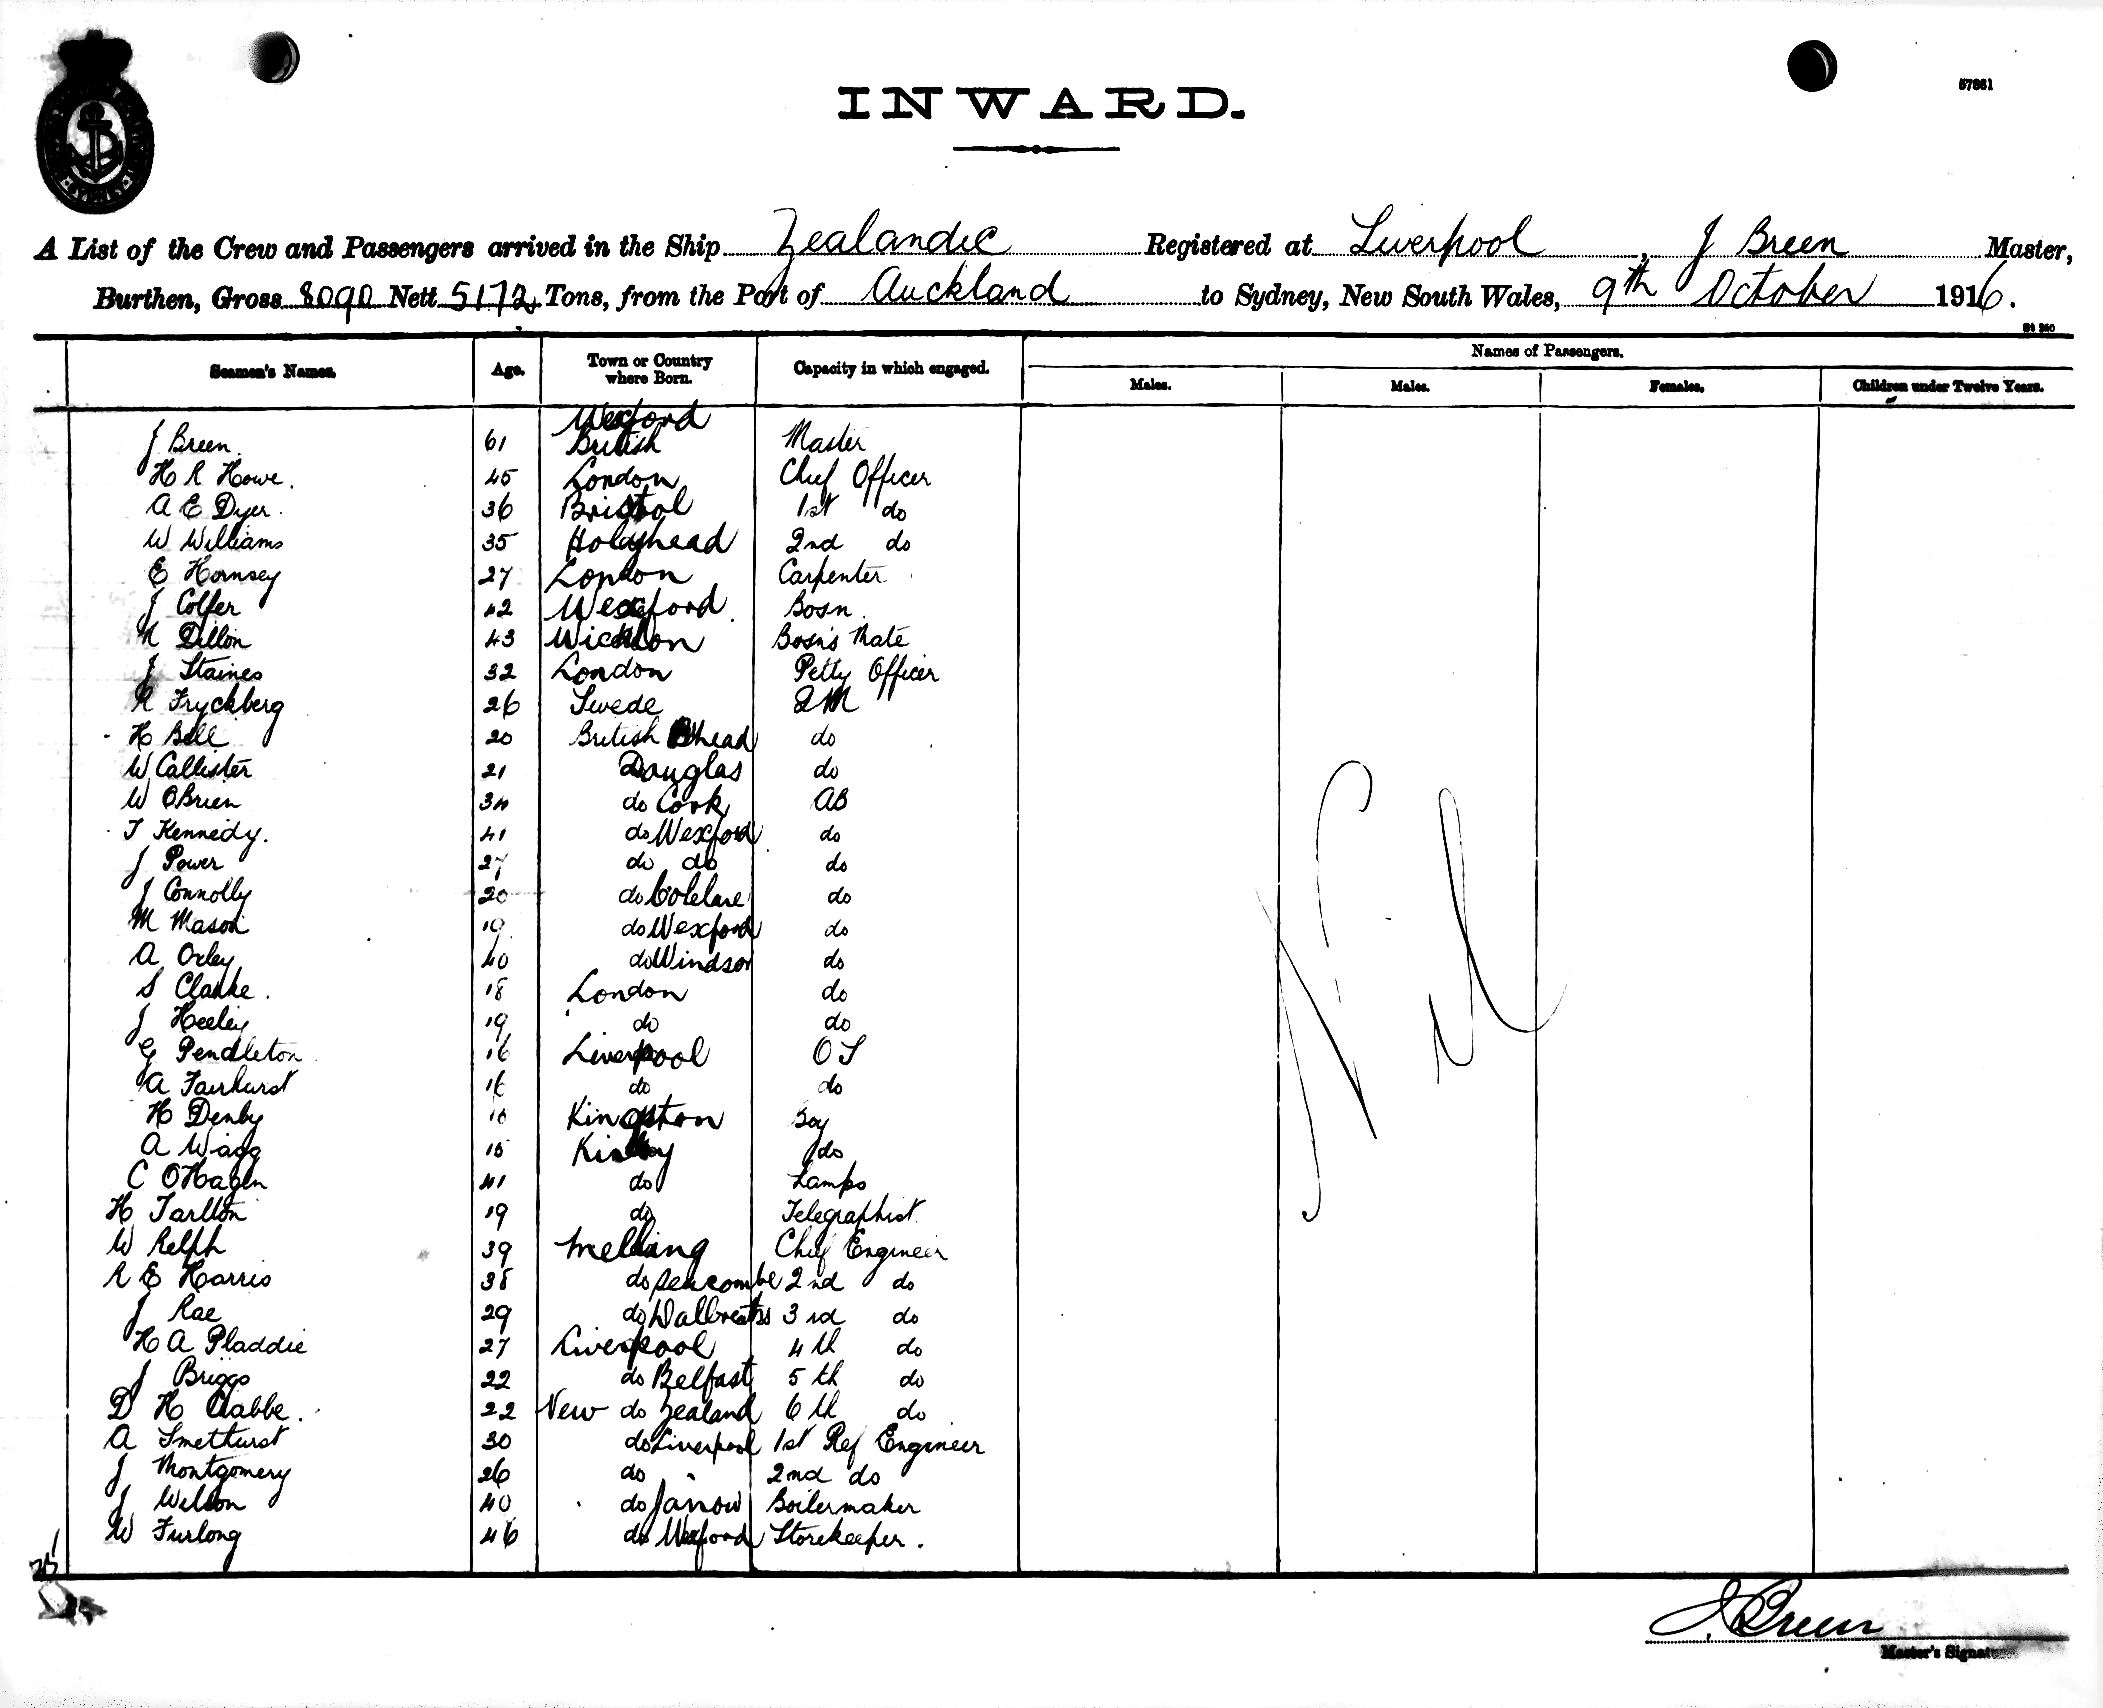 57851
INWARD.
A List of the Crew and Passengers arrived in the Ship Zealandic Registered at Liverpool, J Breen Master,
Burthen, Gross 8090 Nett 5172 Tons, from the Port of Auckland to Sydney, New South Wales, 9th October 1916.
Seamen's Names. Age. Town or Country where Born. Capacity in which engaged. Names of Passengers.
Males. Males. Females. Children under Twelve Years.
Wexford
J Breen 61 British Master
H R Howe. 45 London Chief Officer
A E Dyer. 36 Bristol 1st do
W Williams 35 Holyhead 2nd do
E Hornsey 27 London Carpenter
J Colfer 42 Wexford Bosn
M Dillon 43 Wicklow Bosn's Mate
J Staines 32 London Petty Officer
R Fryckberg 26 Swede QM
H Bell 20 British B'head do
W Callister 21 Douglas do
W OBrien 34 do Cork AB
T Kennedy. 41 do Wexford do
J Power 27 do do do
J Connolly 20 do do
M Mason 19 do Wexford do
A Oxley 40 do Windsor do
S Clarke. 18 London do
J Heeley 19 do do
G Pendleton 16 Liverpool OS
A Fairhurst 16 do do
H Denby Kingston Boy
A Wagg 15 Kirby do
C OHagen 41 do Lamps
H Tarlton 19 do Telegraphist
W Relph 39 Melling Chief Engineer
R E Harris 38 do Seacombe 2nd do
J Rae 29 do 3rd do
H A Pladdie 27 Liverpool 4th do
J Briggs 22 do Belfast 5th do
D H Crabbe. 22 New do Zealand 6th do
A Smethurst 30 do Liverpool 1st Ref Engineer
J Montgomery 26 do " 2nd do
J Wilson 40 do Jarrow Boilermaker
W Furlong 46 do Wexford Storekeeper.
Nil
J. Breen
Master's Signature